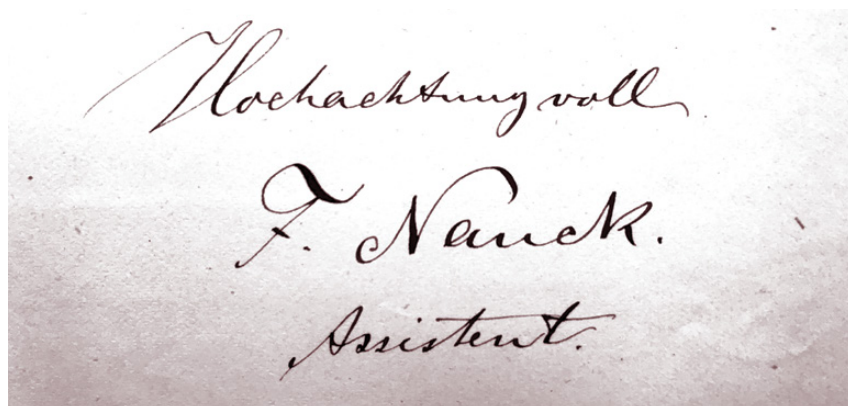 Hochachtung voll
F. Nauck.
Assistent.